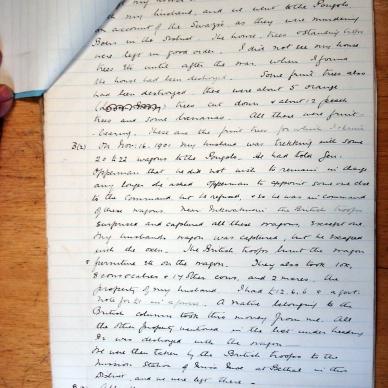 my husband, and we went to the Pongola
on account of the Swazis, as they were murdering
Boers in the District. The house, trees & standing crops
were left in good order. I did not see my house
trees &c until after the war when I found
the house had been destroyed. Some fruit trees also
had been destroyed. There were about 5 orange
trees cut down & about 2 peach
trees and some bananas. All these were fruit
bearing. These are the fruit trees for which I claim
B(2) On Nov. 16. 1901 my husband was trekking with some
20 to 22 wagons to the Pongola. He had told Gen.
Opperman that he did not wish to remain in charge
any longer & asked Opperman to appoint some one else
to the Command but he refused, & so he was in command
of these wagons. Near the British Troops
surprised and captured all these wagons, except one.
My husband's wagon was captured, but he escaped
with the oxen. The British troops burnt the wagon
& furniture &c on the wagon. They also took 1 ox,
8 cows & calves & 17 other cows, and 2 mares, the
property of my husband. I had £12.6.6 & a Govt.
note for £1 in a purse. A native belonging to the
British column took this money from me. All
the other property mentioned in the list under heading
was destroyed with the wagon
We were then taken by the British troops to the
Mission Station of Miss at Bethel in this
District, and we were left there.